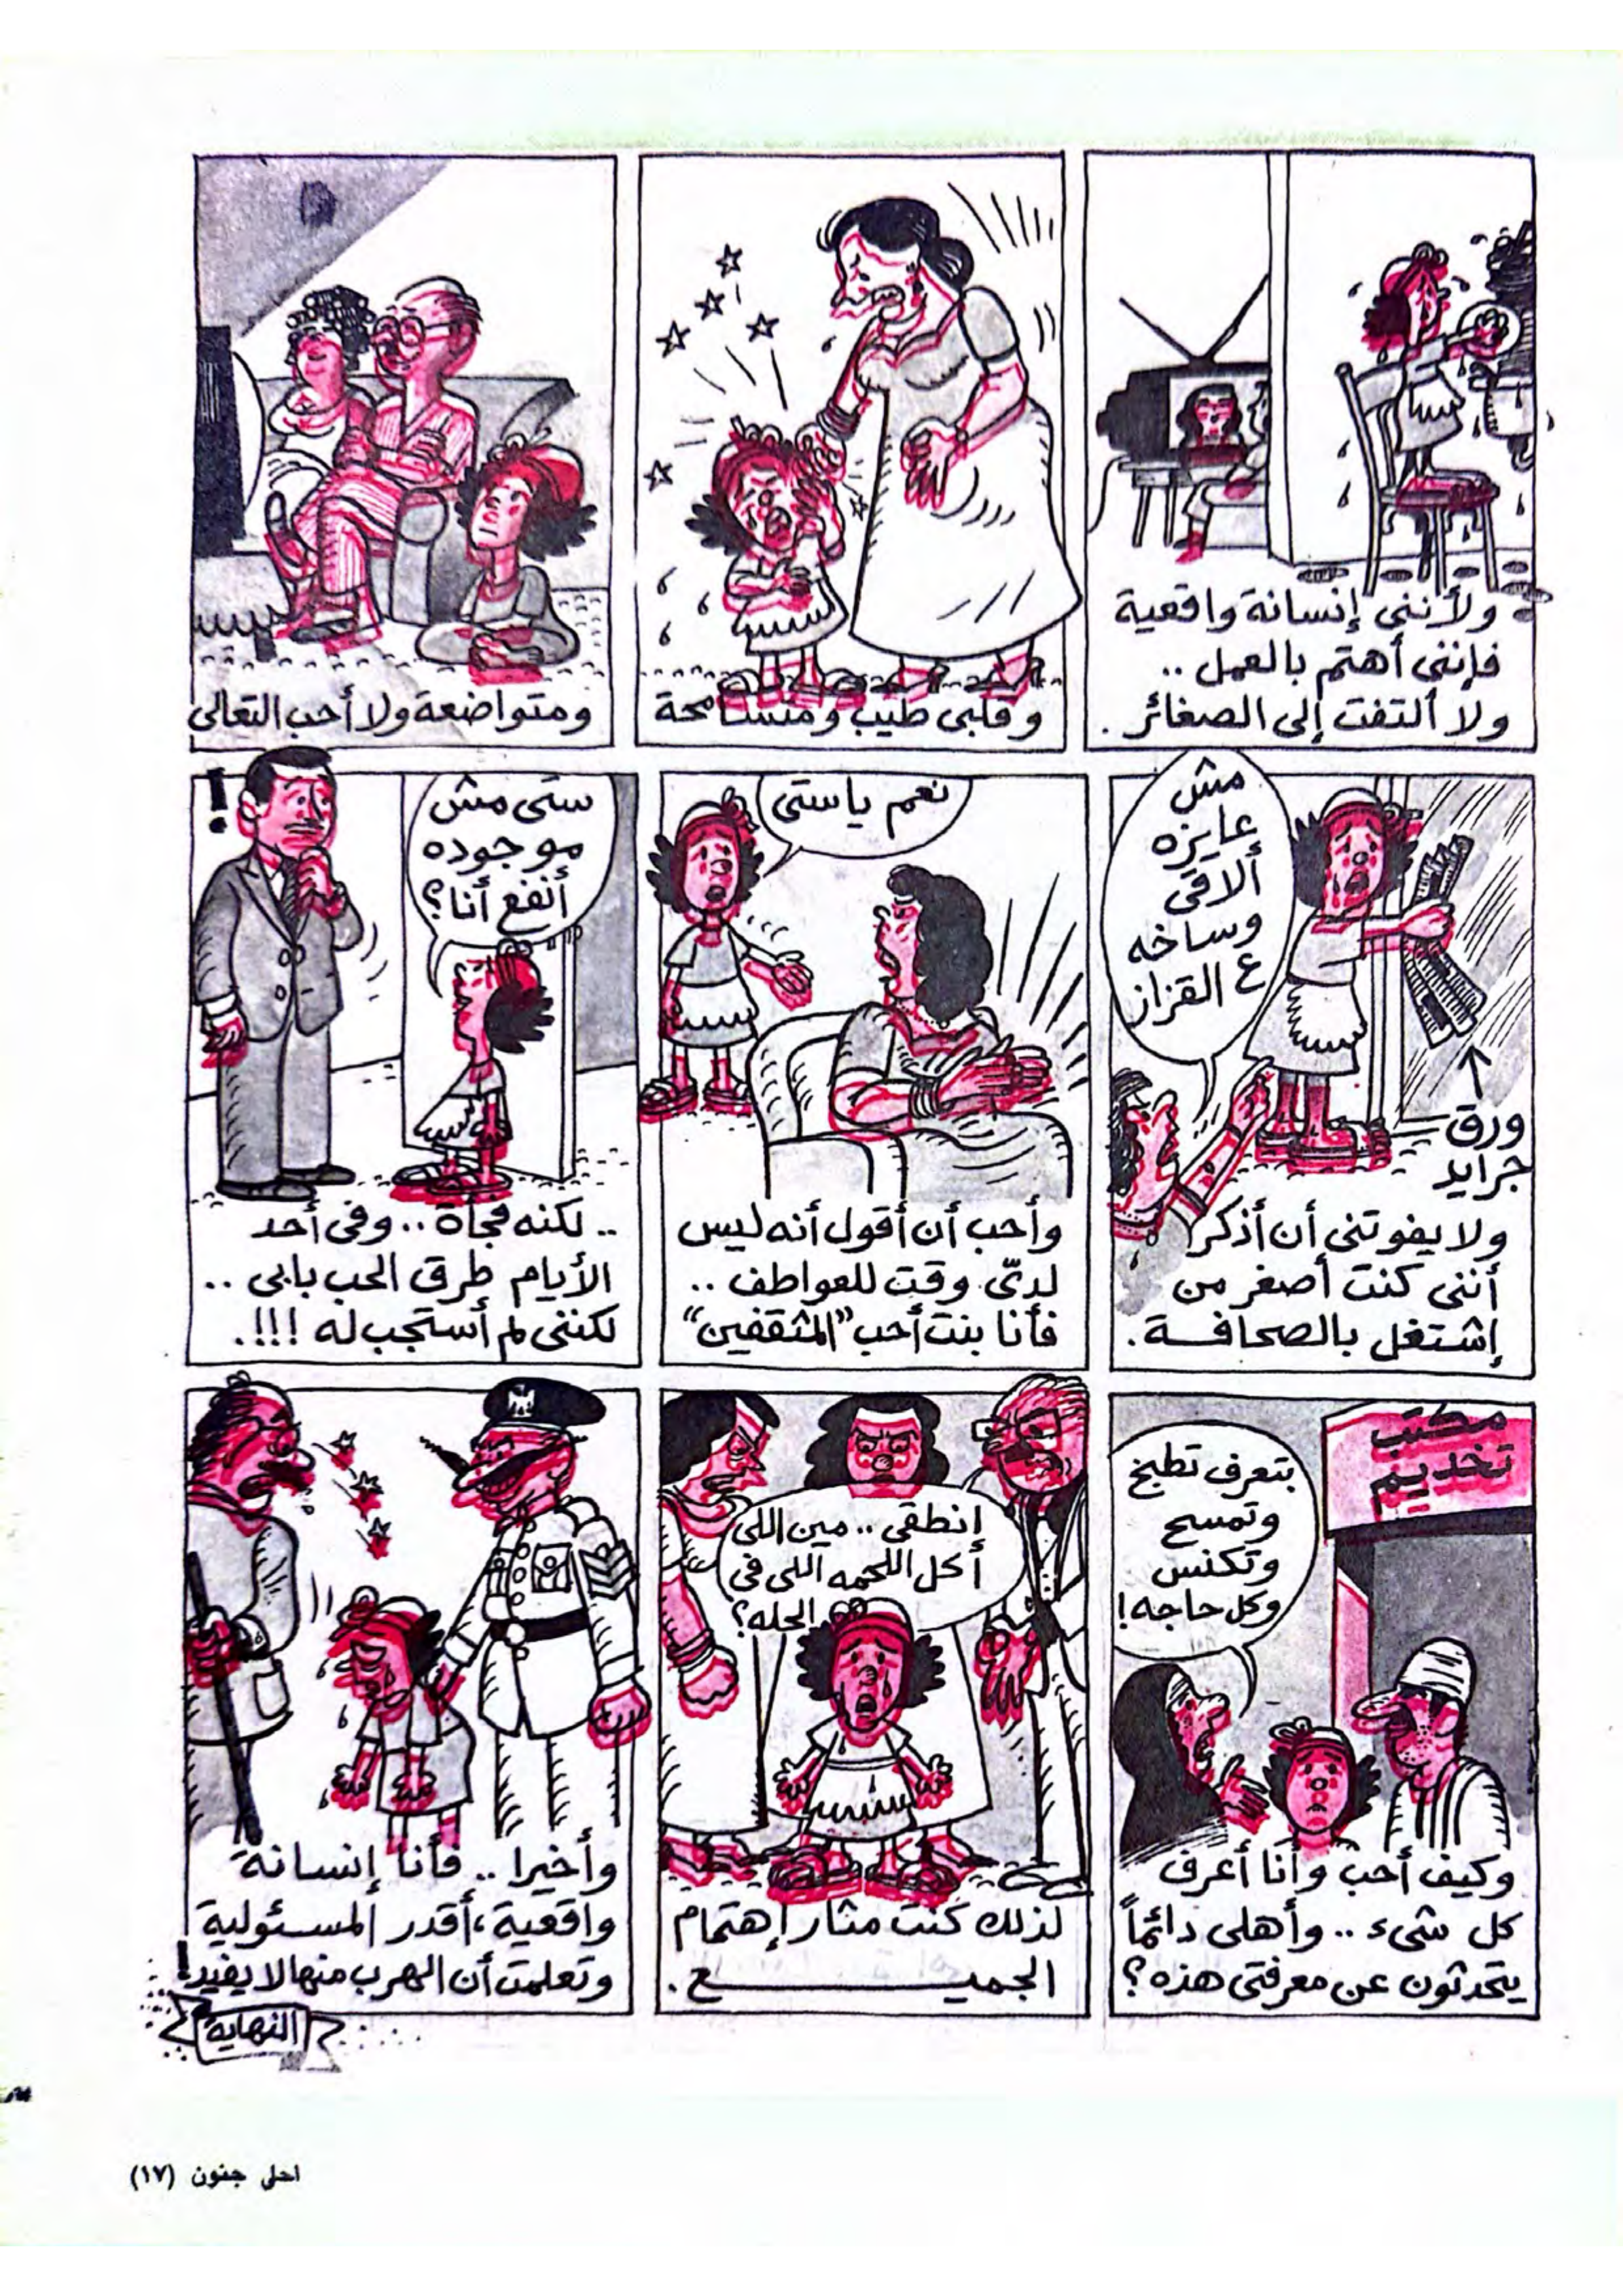 ولأننى إنسانة واقعية
فإننى أهتم بالعمل ..
ولا ألتفت إلى الصغائر .
وقلبى طيب ومتسامحة
ومتواضعة ولا أحب التعالى
مش
عايزه
ألاقى
وساخه
ع القزاز
ورق
جرايد
ولا يفوتنى أن أذكر
أننى كنت أصغر من
إشتغل بالصحافة .
نعم ياستى
وأحب أن أقول أنه ليس
لدىّ وقت للعواطف ..
فأنا بنت أحب "المثقفين"
!
ستى مش
موجوده
أنفع أنا؟
.. لكنه فجأة .. وفى أحد
الأيام طرق الحب بابى ..
لكننى لم أستجب له !!!.
مكتب
تخديم
بتعرف تطبخ
وتمسح
وتكنس
وكل حاجه!
وكيف أحب وأنا أعرف
كل شىء .. وأهلى دائماً
يتحدثون عن معرفتى هذه ؟
إنطقى .. مين اللى
أكل اللحمه اللى فى
الحله؟
لذلك كنت مثار إهتمام
الجميـــــــــع .
وأخيرا .. فأنا إنسانة
واقعية ، أقدر المسئولية
وتعلمت أن الهرب منها لا يفيد !
النهاية
احلى جنون (١٧)